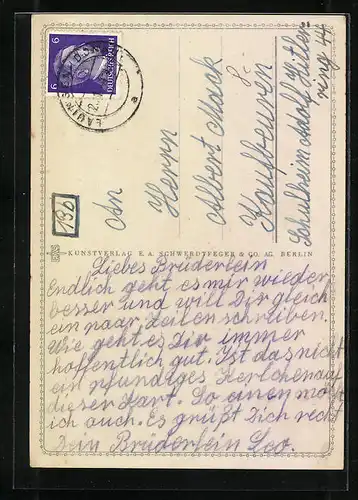 An
Herrn
Albert Mack
Kaufbeuren
Schulheim Adolf Hitler
ring 44
196
KUNSTVERLAG E. A. SCHWERDTFEGER & CO. AG. BERLIN
Liebes Brüderlein
Endlich geht es mir wieder
besser und will Dir gleich
ein paar Zeilen schreiben.
Wie geht es Dir immer
hoffentlich gut. Ist das nicht
ein pfundiges Kerlchen auf
dieser Kart. So einen möcht
ich auch. Es grüßt Dich recht
Dein Brüderlein Leo.